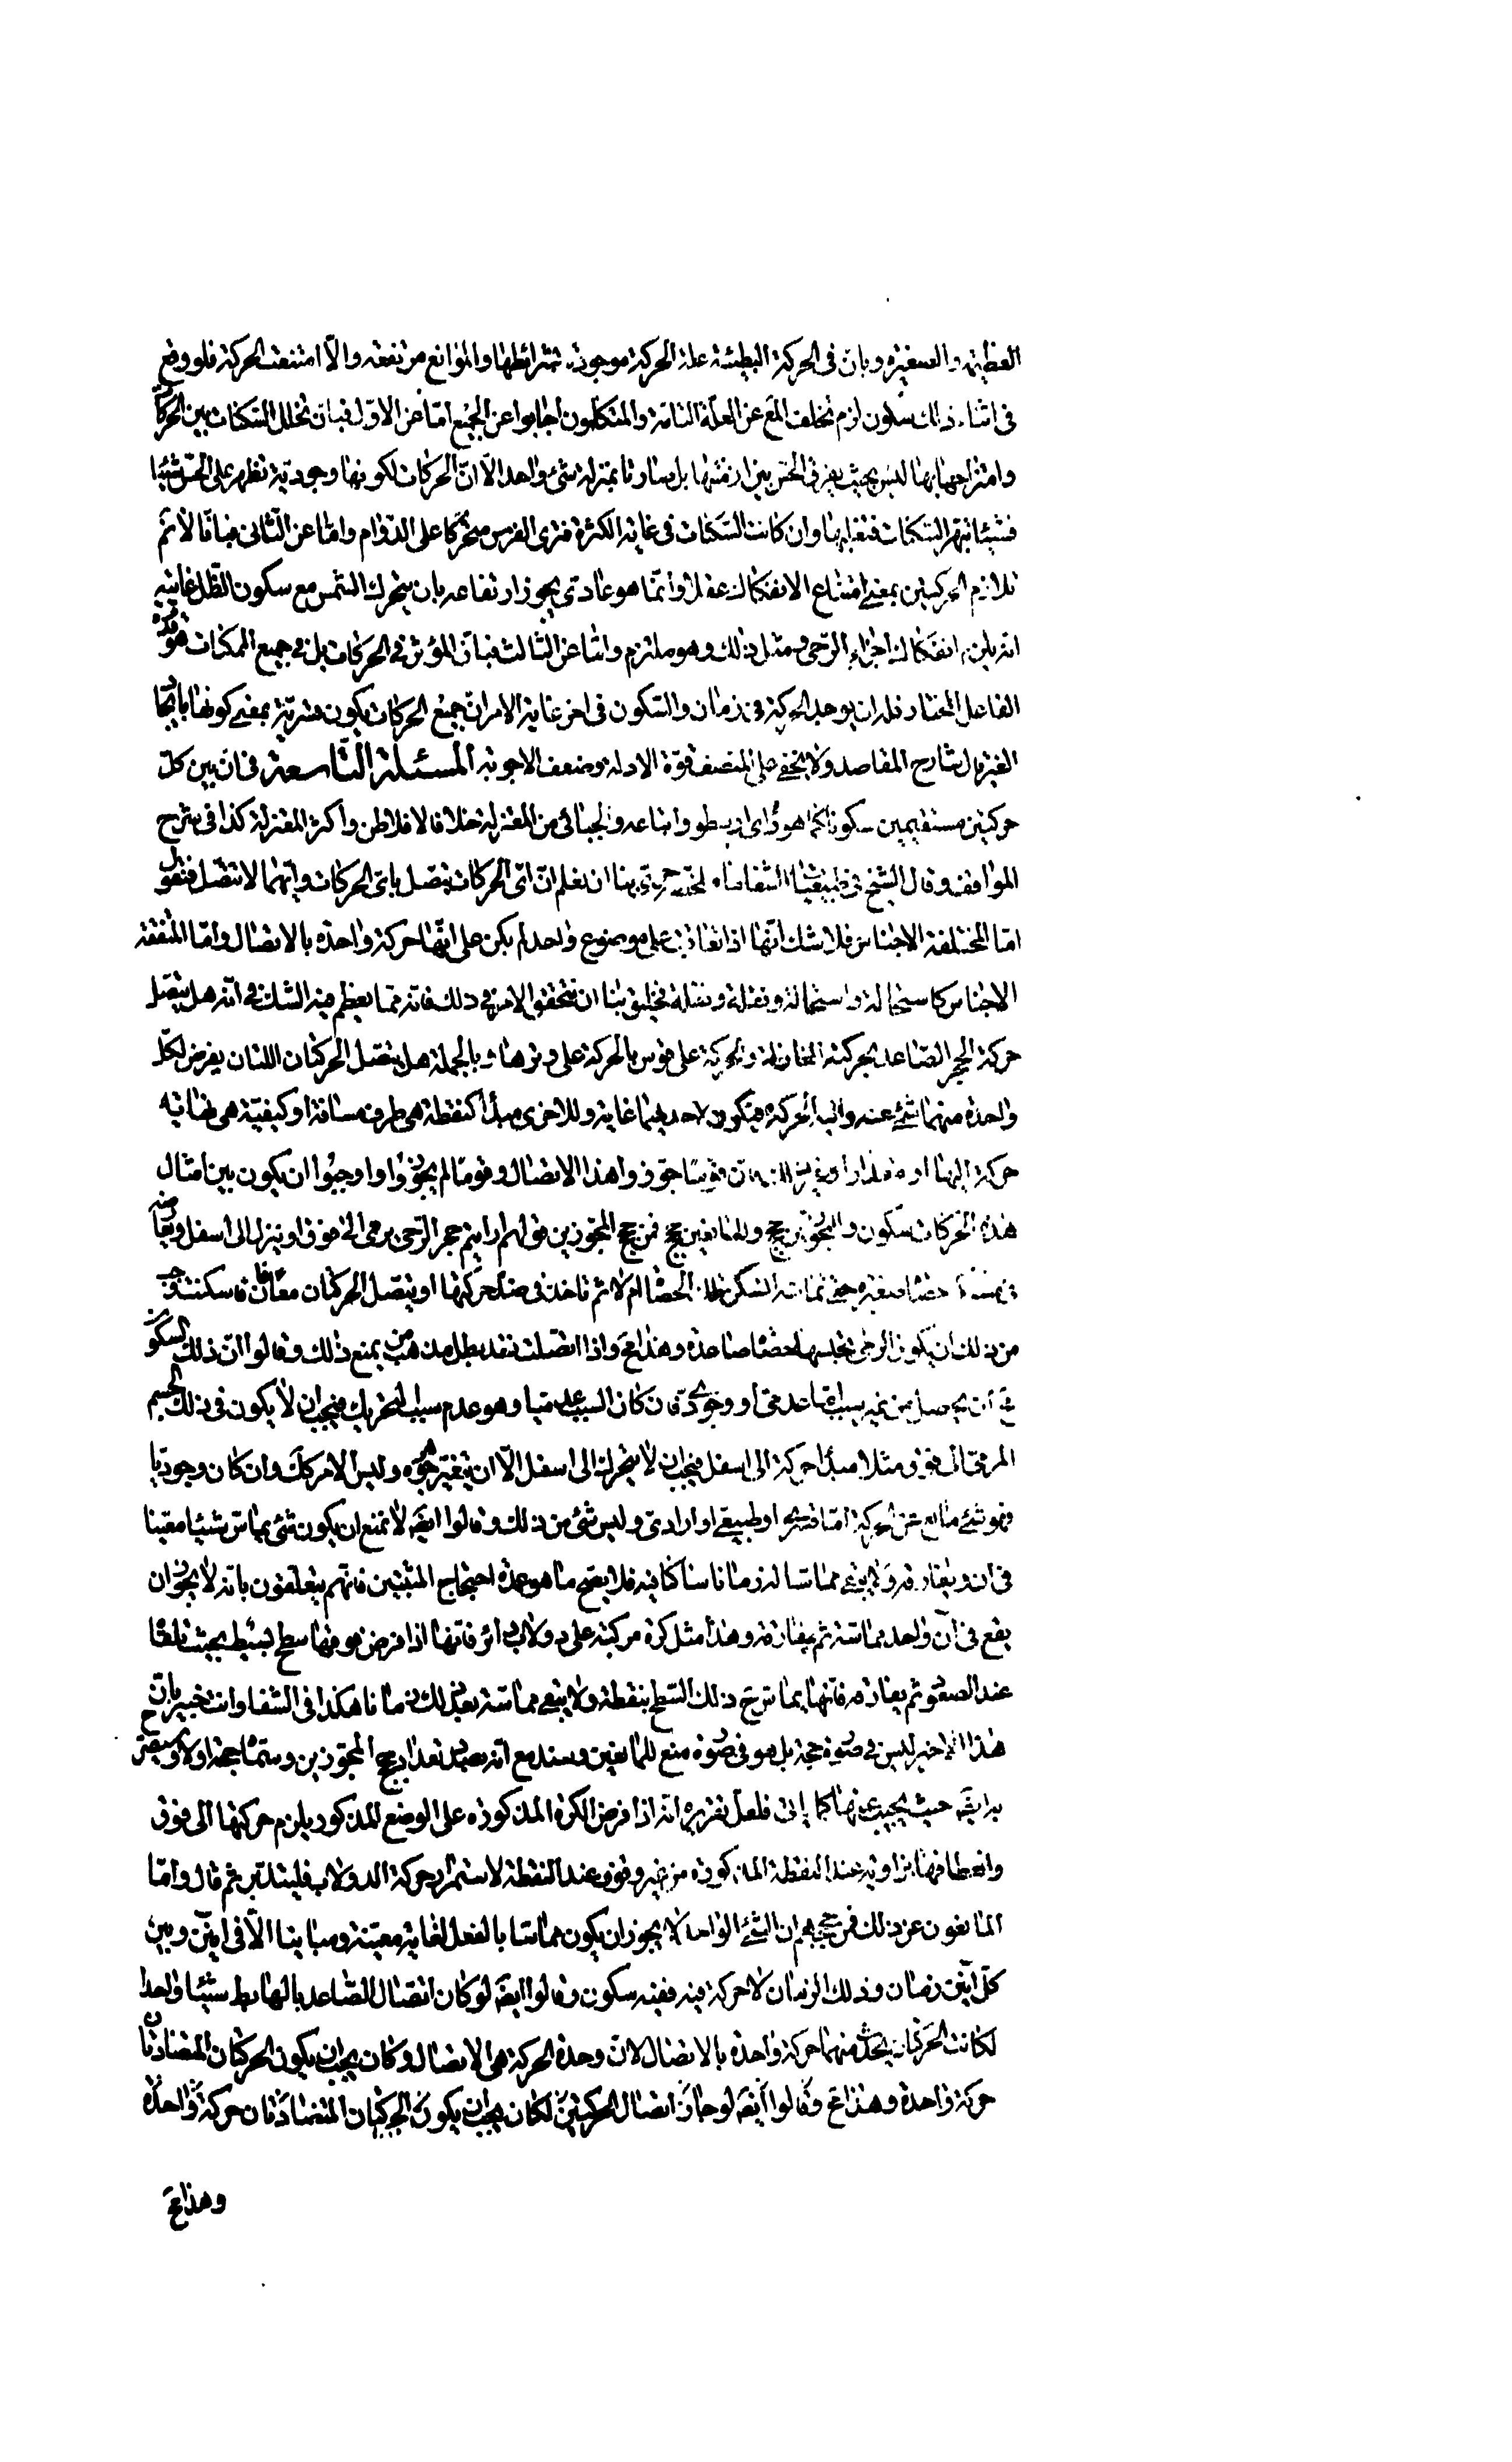 العظيمة والصغيرة وبان فى الحركة البطيئة علة الحركة موجودة بشرائطها والموانع مرتفعة والّا امتنعت الحركة فلو وقع
فى اثناء ذلك سكون لزم تخلف المع عن العلّة التامّة والمتكلمون اجابوا عن الجميع امّا عن الاوّل فبانّ تخلل السّكنات بين الحركات
وامتزاجها بها ليس بحيث يفرق الحس بين ازمنتها بل صارتا بمنزلة شئ واحد الّا انّ الحركات لكونها وجوديّة تظهر على الحسّ شيئا
فشيئا السّكنات وان كانت السّكنات فى غاية الكثرة فترى الفرس متحرّكا على الدّوام وامّا عن الثّانى فبانّا لا نم
تلازم الحركتين بمعنى امتناع الانفكاك عقلا وانّما هو عادىّ يجوز ارتفاعه بان يتحرك الشّمس مع سكون الظّل غايته
انه يلزم انفكاك اجزاء الرّحى ومثل ذلك وهو ملتزم وامّا عن الثالث فبانّ المؤثر فى الحركات بل فى جميع الممكنات هو قدرة
الفاعل المختار فله ان يوجد الحركة فى زمان والسّكون فى اخر غاية الامر انّ جميع الحركات يكون قسريّة بمعنى كونها بايجاد
الغير قال شارح المقاصد ولا يخفى على المنصف قوّة الادلة وضعف الاجوبة المسئلة التّاسعة فى ان بين كلّ
حركتين مستقيمين سكونا كما هو راى ارسطو واتباعه والجبائى من المعتزلة خلافا لافلاطن واكثر المعتزلة كذا فى شرح
المواقف وقال الشيخ فى طبيعيّات الشفا بنا ان نعلم انّ اىّ الحركات يتصل باىّ الحركات وايّهما لا يتّصل فنقول
امّا المختلفة الاجناس فلا شك انّها اذا تعاقبت على موضوع واحد لم يكن على انّها حركة واحدة بالاتصال وامّا المتفقة
الاجناس كاستحالة واستحالة ونقلة ونقلة فخليق بنا ان نتحقق الامر فى ذلك فانّه ممّا يعظم فيه الشك فى انّه هل يتصل
حركة الحجر الصّاعد بحركته النازلة والحركة على قوس بالحركة على وترها وبالجملة هل يتصل الحركتان اللتان يعرض لكلّ
واحدة منهما شئ عنه واليه الحركة فيكون لاحديهما غاية وللاخرى مبدأ كنقطة هى طرف مسافة او كيفيّة هى نهاية
حركة اليها او مقدار او غير ذلك فانّ قوما جوّزوا هذا الاتصال وقوما لم يجوّزوا واوجبوا ان يكون بين امثال
هذه الحركات سكون وللمجوّزين حجج وللمانعين حجج فمن حجج المجوّزين قولهم ارايتم حجر الرّحى يرمى الى فوق او ينزل الى اسفل ويعارضه
حصاة صغيرة حتى تماسه اتسكن تلك الحصاة ام لا ثم تاخذ فى ضدّ حركتها او يتصل الحركتان معا فان سكنت وجب
من ذلك ان يكون الرحى تحبسها حصاة صاعدة وهذا مح واذا اتصلت فقد بطل مذهب من يمنع ذلك وقالوا انّ ذلك السكون
مح ان يحصل من غير سبب امّا عدمىّ او وجودىّ فان كان السبب عدميّا وهو عدم سبب التحريك فيجب ان لا يكون فى ذلك الجسم
المرمىّ الى فوق مثلا مبدأ حركة الى اسفل فيجب ان لا يتحرك الى اسفل الّا ان يتغيّر جوهره وليس الامر كك وان كان وجوديا
فهو شئ مانع عن الحركة امّا قسرىّ او طبيعىّ او ارادىّ وليس شئ من ذلك وقالوا ايضَ لا نمنع ان يكون شئ يماسّ شيئا معيّنا
فى ان ويفارقه ولا يبقى مماسّا له زمانا ساكنا فيه فلا يصح ما هو عمدة احتجاج المثبتين فانّهم يتعلّقون بانه لا يجوز ان
يقع فى آن واحد مماسّة ثم مفارقة وهذا مثل كرة مركبة على دولاب دائر فانّها اذا فرض فوقها سطح بسيط بحيث تلقاها
عند الصعود ثم يفارقه فانّها يماسّ ح ذلك السّطح بنقطة ولا يبقى مماسّة بعد ذلك زمانا هكذا فى الشفا وانت خبير بانّ
هذا الاخير ليس فى صورة حجة بل هو فى صورة منع للمانعين وسند مع انّه بصدد تعداد حجج المجوّزين وستمّاها حجة اولا وسيصرّح
به ايضَ حيث يجيب عنها كما ياتى فلعلّ تقريره انّه اذا فرض الكرة المذكورة على الوضع المذكور يلزم حركتها الى فوق
وانعطافها بزاوية عند النقطة المذكورة من غير وقوف عند النقطة لاستمرار حركة الدولاب فليتدبّر ثم قال وامّا
المانعون عن ذلك فمن حججهم ان الشئ الواحد لا يجوز ان يكون مماسّا بالفعل لغاية معيّنة ومباينا الّا فى انين وبين
كلّ انين زمان وذلك الزمان لا حركة فيه ففيه سكون وقالوا ايضَ لو كان اتصال الصّاعد بالهابط شيئا واحدا
لكانت الحركتان يتحدّ منهما حركة واحدة بالاتصال لانّ وحدة الحركة هى الاتصال وكان يجب ان يكون الحركتان المتضادتان
حركة واحدة وهذا مح وقالوا ايضَ لو جاز اتصال الحركتين لكان يجب ان يكون الحركتان المتضادّتان حركة واحدة
وهذا مح